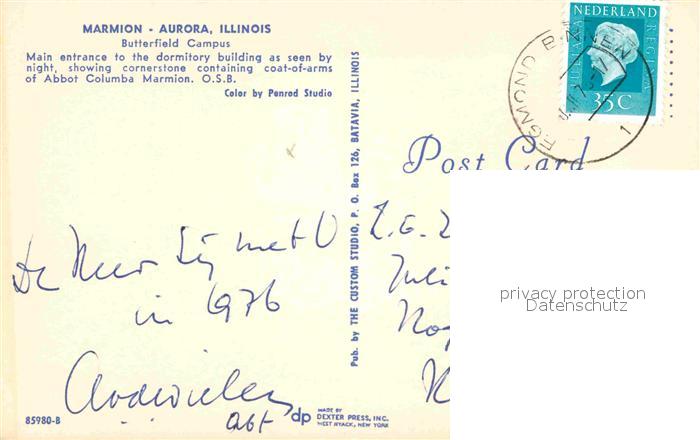 MARMION - AURORA, ILLINOIS
Butterfield Campus
Main entrance to the dormitory building as seen by
night, showing cornerstone containing coat-of-arms
of Abbot Columba Marmion. O.S.B.
Color by Penrod Studio
NEDERLAND
JULIANA REGINA
35 C
EGMOND BINNEN
1
Post Card
Pub. by THE CUSTOM STUDIO, P. O. Box 126, BATAVIA, ILLINOIS
De Heer zij met U
in 1976
abt
Z.E.
Juli
No
N
privacy protection
Datenschutz
85980-B
dp
MADE BY
DEXTER PRESS, INC.
WEST NYACK, NEW YORK